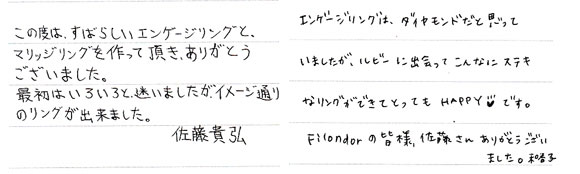 この度は、すばらしいエンゲージリングと、
マリッジリングを作って頂き、ありがとう
ございました。
最初はいろいろと、迷いましたがイメージ通り
のリングが出来ました。
佐藤貴弘
エンゲージリングは、ダイヤモンドだと思って
いましたが、ルビーに出会ってこんなにステキ
なリングができてとっても HAPPY です。
Filondorの皆様、佐藤さんありがとうござい
ました。